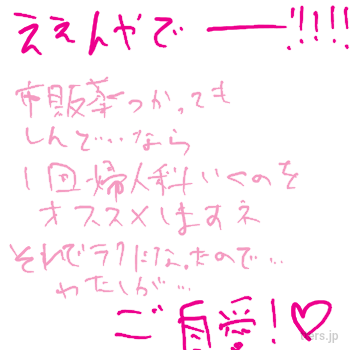 ええんやで ――!!!!
市販薬つかっても
しんど…なら
1回婦人科いくのを
オススメしますネ
それでラクになったので…
わたしが…
ご自愛!♡
ters.jp